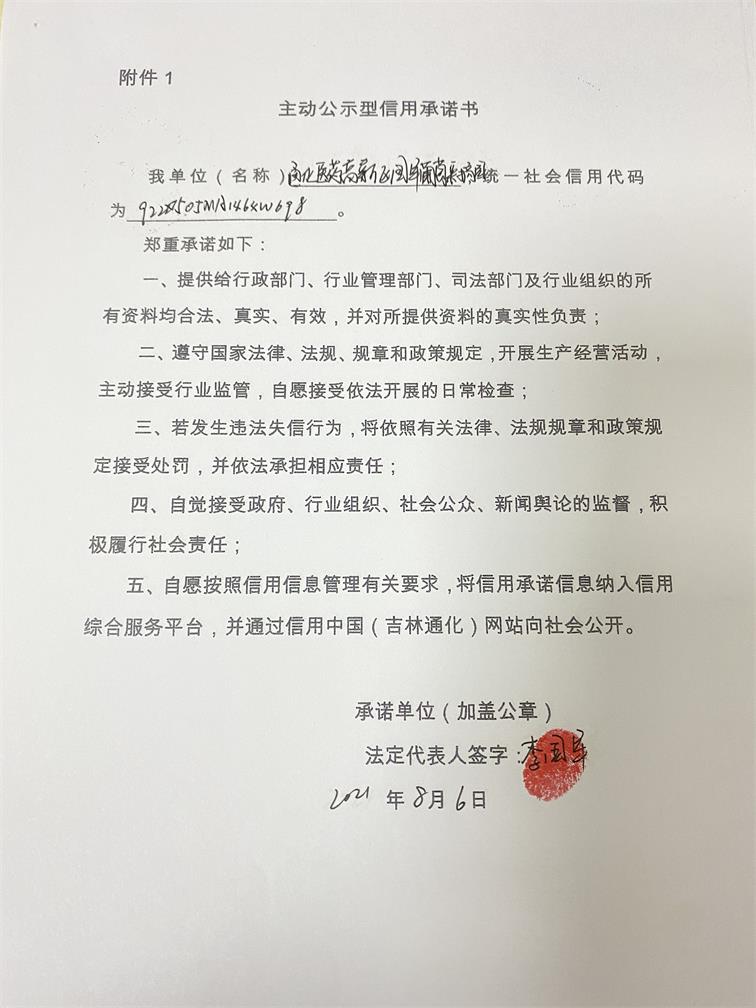 附件1
主动公示型信用承诺书
我单位（名称）通化医药高新区国军 统一社会信用代码
为 。
郑重承诺如下：
一、提供给行政部门、行业管理部门、司法部门及行业组织的所
有资料均合法、真实、有效，并对所提供资料的真实性负责；
二、遵守国家法律、法规、规章和政策规定，开展生产经营活动，
主动接受行业监管，自愿接受依法开展的日常检查；
三、若发生违法失信行为，将依照有关法律、法规规章和政策规
定接受处罚，并依法承担相应责任；
四、自觉接受政府、行业组织、社会公众、新闻舆论的监督，积
极履行社会责任；
五、自愿按照信用信息管理有关要求，将信用承诺信息纳入信用
综合服务平台，并通过信用中国（吉林通化）网站向社会公开。
承诺单位（加盖公章）
法定代表人签字：李国军
2021 年 8月 6日